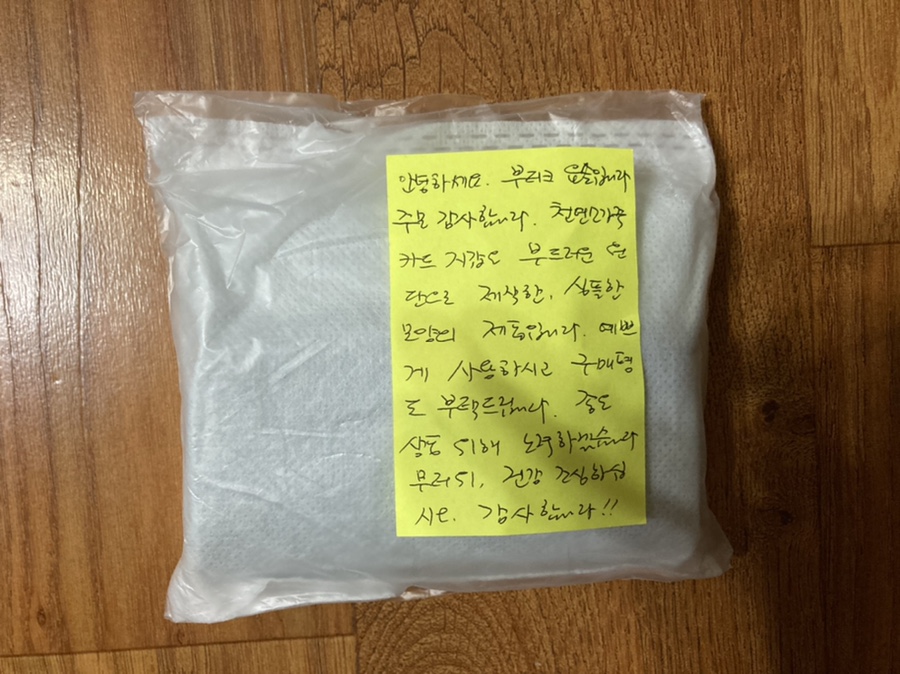 안녕하세요. 부티크 입니다
주문 감사합니다. 천연가죽
카드 지갑으로 부드러운 원
단으로 제작한, 심플한
모양의 제품입니다. 예쁘
게 사용하시고 구매평
도 부탁드립니다. 좋은
상품 위해 노력하겠습니다
무더위, 건강 조심하십
시요. 감사합니다!!